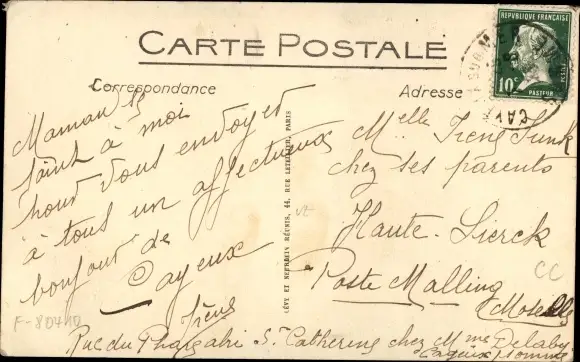 CARTE POSTALE
Correspondance
Adresse
RÉPUBLIQUE FRANÇAISE
10c
PASTEUR
POSTES
CAY
SUR MER
Maman se
joint à moi
pour vous envoyer
à tous un affectueux
bonjour de
Cayeux
Irène
Rue du Phare St Catherine chez Mme Delaby
Cayeux Somme
LÉVY ET NEURDEIN RÉUNIS, 44, RUE LETELLIER, PARIS
Melle Irène Funk
chez ses parents
Haute-Sierck
Poste Malling
Moselle
CC
F-80410